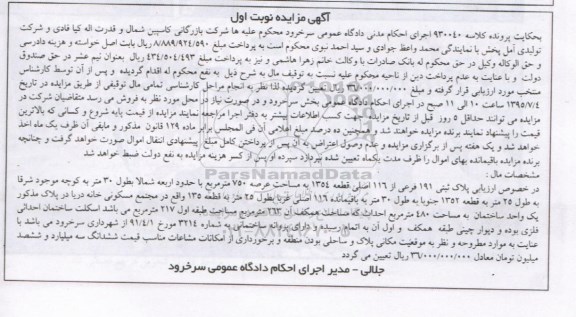 آگهی مزایده نوبت اول
بحکایت پرونده کلاسه ۹۳۰۰۴۰ اجرای احکام مدنی دادگاه عمومی سرخرود محکوم علیه ها شرکت بازرگانی کاسپین شمال و قدرت اله کیا قادی و شرکت
تولیدی آمل پخش با نمایندگی محمد واعظ جوادی و سید احمد نبوی محکوم است به پرداخت مبلغ ۸/۸۸۹/۹۲۴/۵۹۰ ریال بابت اصل خواسته و هزینه دادرسی
و حق الوکاله وکیل در حق محکوم له بانک صادرات با وکالت خانم زهرا هاشمی و نیز به پرداخت مبلغ ۴۳۴/۵۰۴/۴۹۳ ریال بعنوان نیم عشر در حق صندوق
دولت و با عنایت به عدم پرداخت دین از ناحیه محکوم علیه نسبت به توقیف مال به شرح ذیل به نفع محکوم له اقدام گردیده و پس از آن توسط کارشناس
منتخب مورد ارزیابی قرار گرفته و مبلغ ۳۶/۰۰۰/۰۰۰/۰۰۰ ریال تعیین گردیده لذا نظر به انجام مراحل کارشناسی تمامی مال توقیفی از طریق مزایده در تاریخ
۱۳۹۵/۷/۴ ساعت ۱۰ الی ۱۱ صبح در اجرای احکام دادگاه عمومی بخش سرخرود و در صورت نیاز در محل مورد نظر به فروش می رسد متقاضیان شرکت در
مزایده می توانند حداقل ۵ روز قبل از تاریخ مزایده جهت کسب اطلاعات بیشتر به دفتر اجرا مراجعه نمایند مزایده از قیمت پایه شروع و کسانی که بالاترین
قیمت را پیشنهاد نمایند برنده مزایده خواهند شد و همچنین ده درصد مبلغ اعلامی آن فی المجلس برابر ماده ۱۲۹ قانون مذکور و مابقی آن ظرف یک ماه اخذ
خواهد شد و یک هفته پس از برگزاری مزایده و عدم وصول اعتراض به آن پس از پرداختن کامل مبلغ پیشنهادی انتقال اموال صورت خواهد گرفت و چنانچه
برنده مزایده باقیمانده بهای اموال را ظرف مدت یکماه تعیین شده نپردازد سپرده او پس از کسر هزینه مزایده به نفع دولت ضبط خواهد شد.
مشخصات مال :
در خصوص ارزیابی پلاک ثبتی ۱۹۱ فرعی از ۱۱۶ اصلی قطعه ۱۳۵۴ به مساحت عرصه ۷۵۰ مترمربع با حدود اربعه شمالا بطول ۳۰ متر به کوچه موجود شرقا
به طول ۲۵ متر به قطعه ۱۳۵۲ جنوبا به طول ۳۰ متر به باقیمانده ۱۱۶ اصلی غربا بطول ۲۵ متر به قطعه ۱۳۵ واقع در مجتمع مسکونی خانه دریا در پلاک مذکور
یک واحد ساختمان به مساحت ۴۸۰ مترمربع احداث که مساحت همکف آن ۲۶۳ مترمربع مساحت طبقه اول ۲۱۷ مترمربع می باشد اسکلت ساختمان احداثی
فلزی بوده و دیوار چینی طبقه همکف و اول آن به اتمام رسیده و دارای پروانه ساختمانی به شماره ۳۲۱۴ مورخ ۹۱/۴/۱ از شهرداری سرخرود می باشد با
عنایت به موارد مطروحه و نظر به موقعیت مکانی پلاک و ساحلی بودن منطقه و برخورداری از امکانات مشاعات مناسب قیمت ششدانگ سه میلیارد و ششصد
میلیون تومان معادل ۳۶/۰۰۰/۰۰۰/۰۰۰ ریال تعیین می گردد
جلالی - مدیر اجرای احکام دادگاه عمومی سرخرود
ParsNamadData